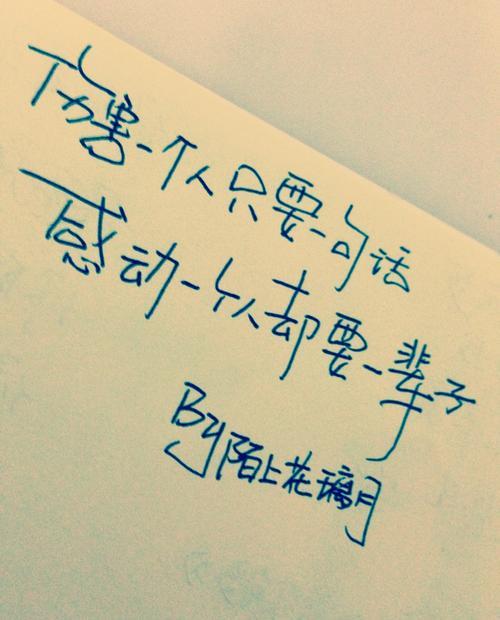 伤害一个人只要一句话
感动一个人却要一辈子
By 陌上花璃月